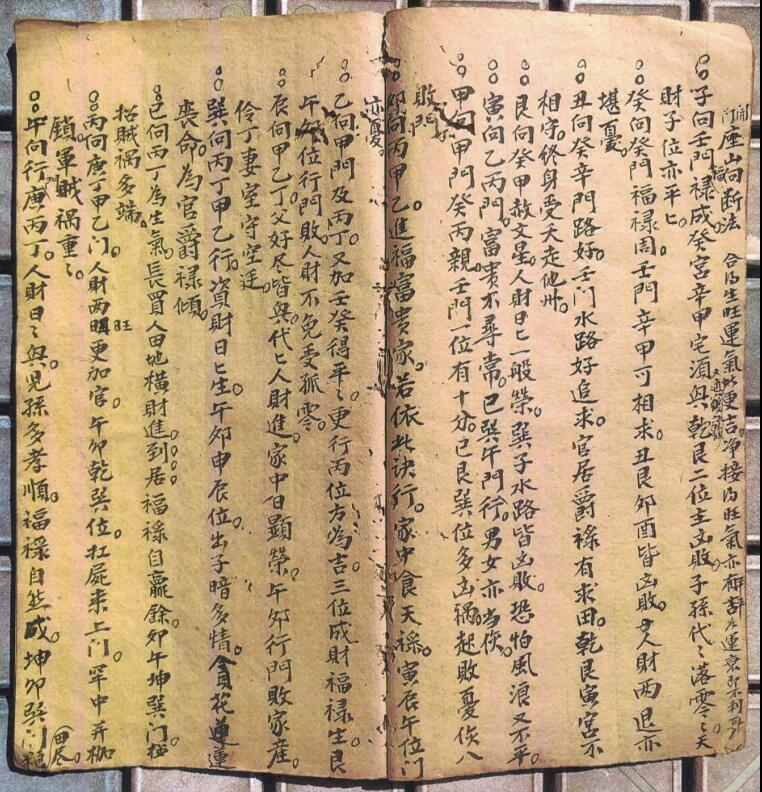 開門座山向断法 合得生旺運氣更吉净接得旺氣亦
子向壬門禄成癸宫辛甲宅須興乾艮二位主凶敗子孫代々落零々天
財子位亦平上
癸向癸門福禄周壬門辛甲可相求丑艮卯酉皆凶敗人財两退亦
堪憂
丑向癸辛門路好壬门水路好追求官居爵禄有求田乾艮寅宫不
相守終身受夭走他州
艮向癸甲赦文星人財日上一般榮巽子水路皆凶敗恐怕風浪又不平
寅向乙丙門富贵不尋常巳巽午門行男女亦当伤
甲向甲門癸丙親壬門一位有十分巳艮巽位多凶禍起敗憂伤人
敗門
卯向丙甲乙進福富贵家若依此訣行家中食天禄寅辰午位门
亦憂
乙向甲門及丙丁又加壬癸得平々更行丙位方為吉三位成財福禄生艮
午卯位行門敗人財不免受孤零
辰向甲乙丁父好尽皆興代上人財進家中日顕榮午卯行門敗家産
伶丁妻室守空廷
巽向丙丁甲乙行資財日上生午卯申辰位出子暗多情貪花連連
喪命為官爵禄傾
巳向丙丁為生氣長買人田地横財進到居福禄自贏餘卯午坤巽门
招賊禍多端
丙向庚丁甲乙门人財两旺更加官午卯乾巽位扛屍来上门罕中并枷
鎖軍賊禍重々
午向行庚丙丁人財日々興児孫多孝順福禄自然成坤卯巽门
田尽